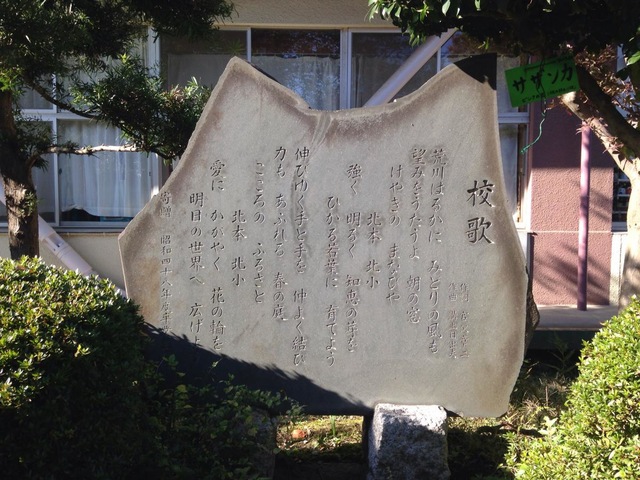 校歌
作詞
作曲
荒川はるかに みどりの風も
望みをうたうよ 朝の窓
けやきの まなびや
北本 北小
強く 明るく 知恵の芽を
ひかる若葉に 育てよう
伸びゆく手と手を 仲よく結び
力も あふれる 春の庭
こころの ふるさと
北本 北小
愛に かがやく 花の輪を
明日の世界へ 広げよ
寄贈 昭和四十八年度卒
サザンカ